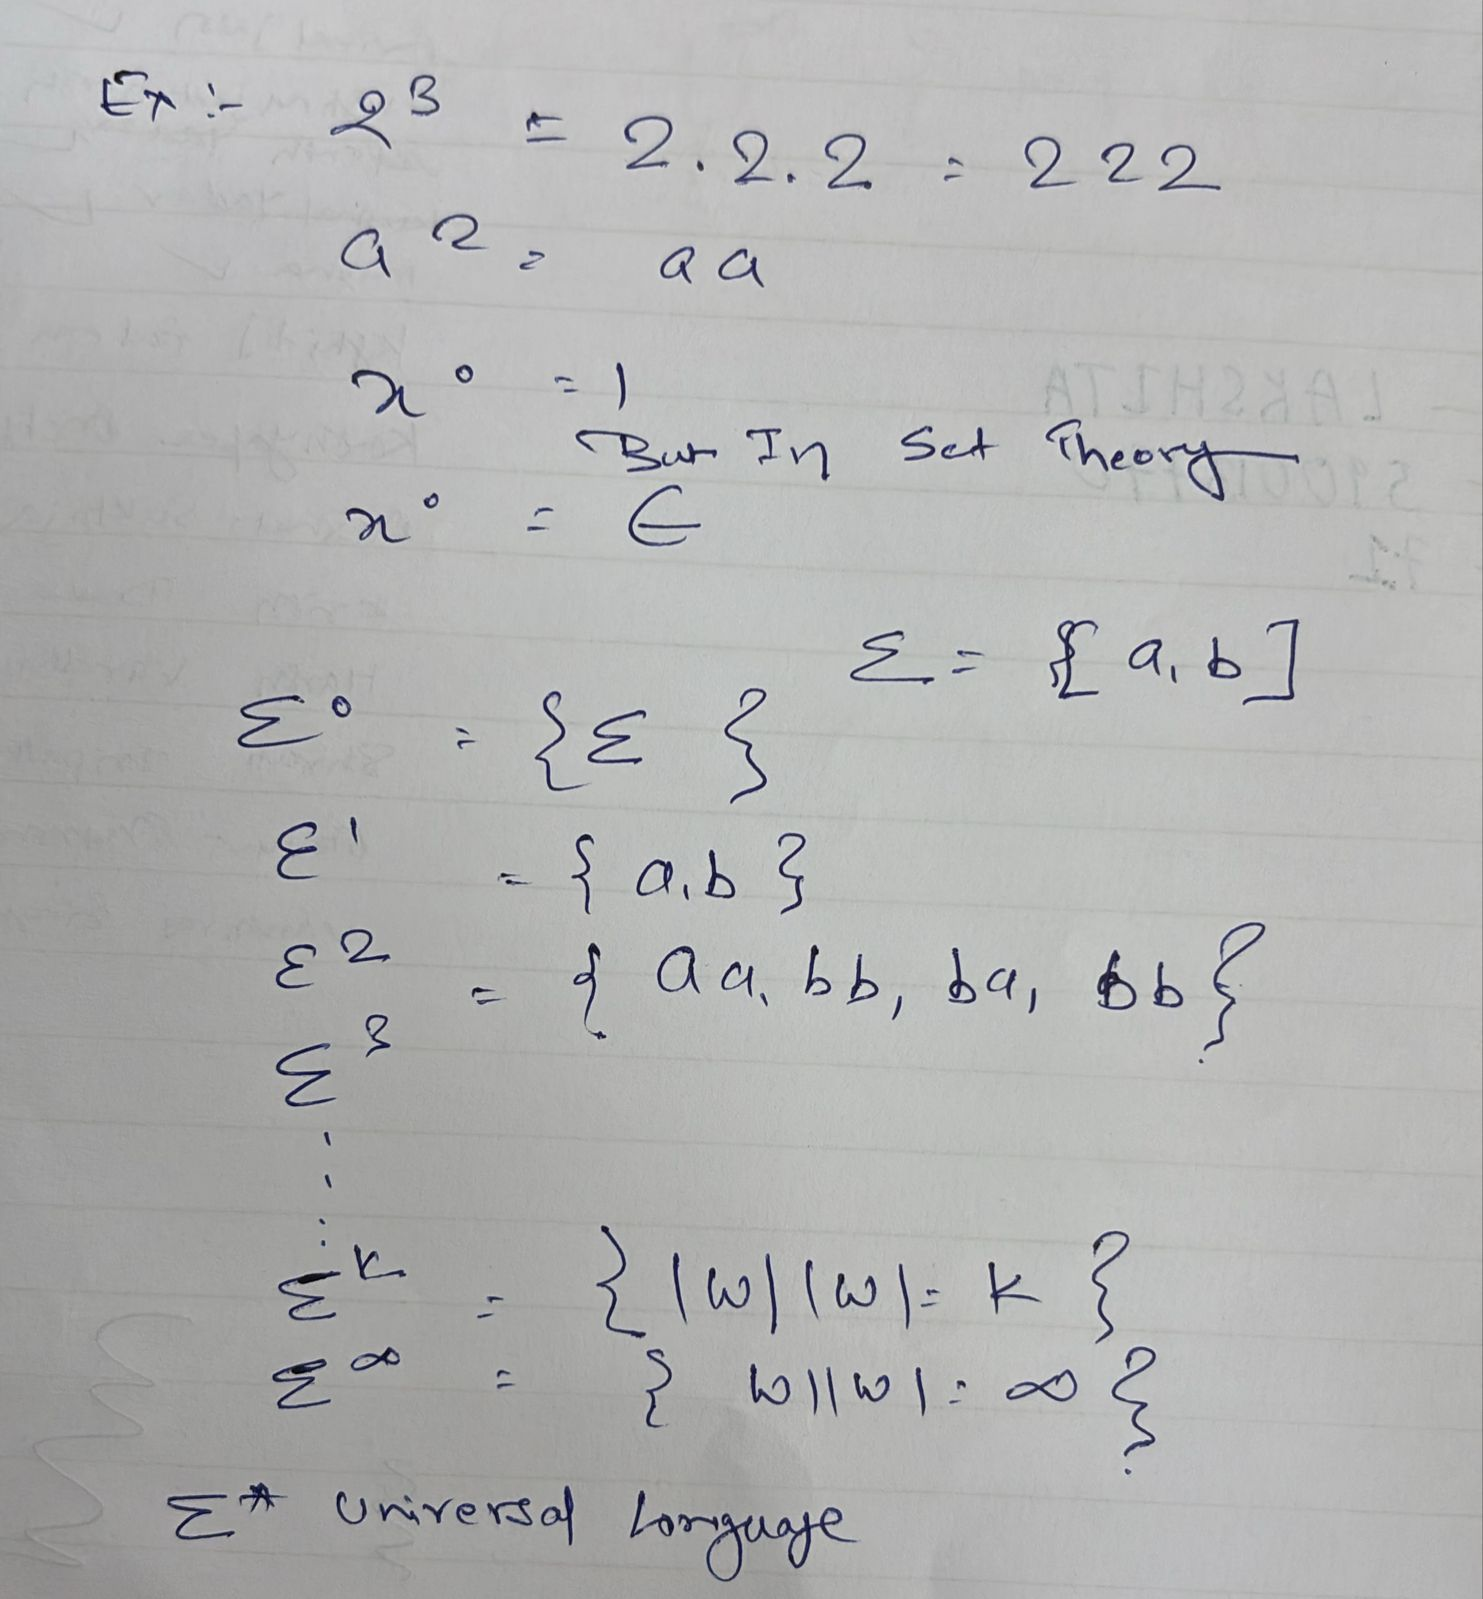 Ex :- 2³ = 2.2.2 = 222
a² = aa
x⁰ = 1
But In Set Theory
x⁰ = ∈
Σ = {[ a, b ]
Σ⁰ = { Σ }
Ɛ¹ = { a, b }
Ɛ² = { aa, bb, ba, bb }
Σ³
Σᴷ = { |w| |w| = K }
Σ^∞ = { w | |w| = ∞ }
Σ* Universal Language